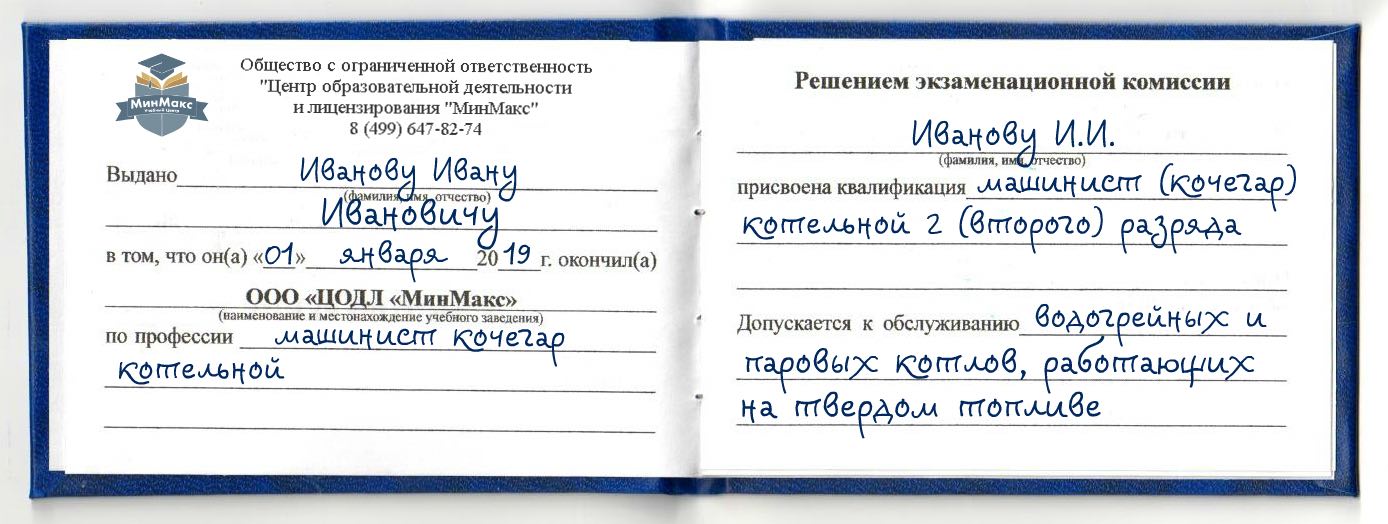 МинМакс
Учебный Центр
Общество с ограниченной ответственность
"Центр образовательной деятельности
и лицензирования "МинМакс"
8 (499) 647-82-74
Выдано Иванову Ивану
(фамилия, имя, отчество)
Ивановичу
в том, что он(а) «01» января 2019 г. окончил(а)
ООО «ЦОДЛ «МинМакс»
(наименование и местонахождение учебного заведения)
по профессии машинист кочегар
котельной
Решением экзаменационной комиссии
Иванову И.И.
(фамилия, имя, отчество)
присвоена квалификация машинист (кочегар)
котельной 2 (второго) разряда
Допускается к обслуживанию водогрейных и
паровых котлов, работающих
на твердом топливе